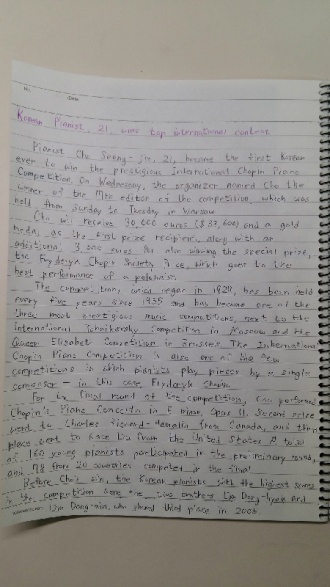 Korean Pianist, 21, wins top international contest
Pianist Cho Seong-jin, 21, became the first Korean
ever to win the prestigious International Chopin Piano
Competition. On Wednesday, the organizer named Cho the
winner of the 17th edition of the competition, which was
held from Sunday to Tuesday in Warsaw.
Cho will receive 30,000 euros ($ 33,600) and a gold
medal as the first prize recipient, along with an
additional 3,000 euros for also winning the special prize,
the Fryderyk Chopin Society Prize, which goes to the
best performance of a polonaise.
The competition, which began in 1927, has been held
every five years since 1955 and has become one of the
three most prestigious music competitions, next to the
International Tchaikovsky Competition in Moscow and the
Queen Elisabet Competition in Brussels. The International
Chopin Piano Competition is also one of the few
competitions in which pianists play pieces by a single
composer - in this case, Fryderyk Chopin.
For the final round of the competition, Cho performed
Chopin's Piano Concerto in E minor, Opus 11. Second prize
went to Charles Richard- from Canada, and third
place went to Kate Liu from the United States. A total
of 160 young pianists participated in the preliminary round,
and 78 from 20 countries competed in the final.
Before Cho's win, the Korean pianists with the highest scores
in the competition were the two brothers Lim Dong-hyek and
Lim Dong-min, who shared third place in 2005.